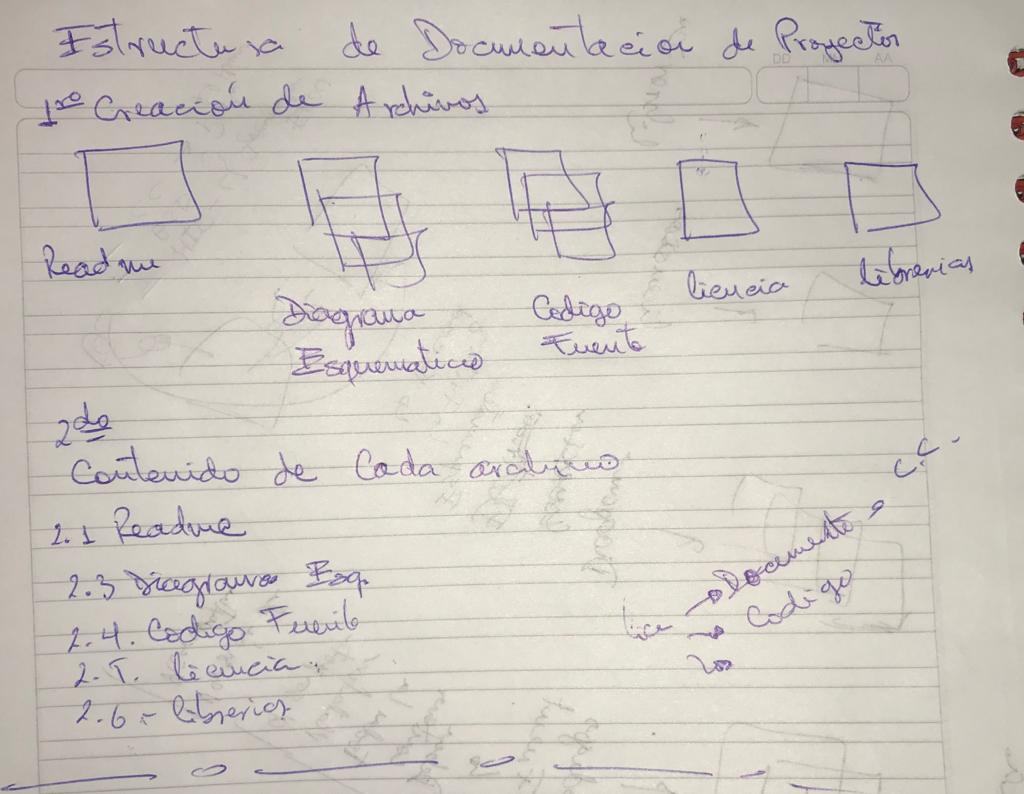 Estructura de Documentacion de Proyectos
DD AA
1ro Creación de Archivos
Readme
Diagrama
Esquematico
Codigo
Fuente
licencia
librerias
2do
Contenido de Cada archivo
2.1 Readme
2.3 Diagrama Esq.
2.4. Codigo Fuente
2.5. licencia.
2.6 - librerias
Documento
C.C.
Codigo